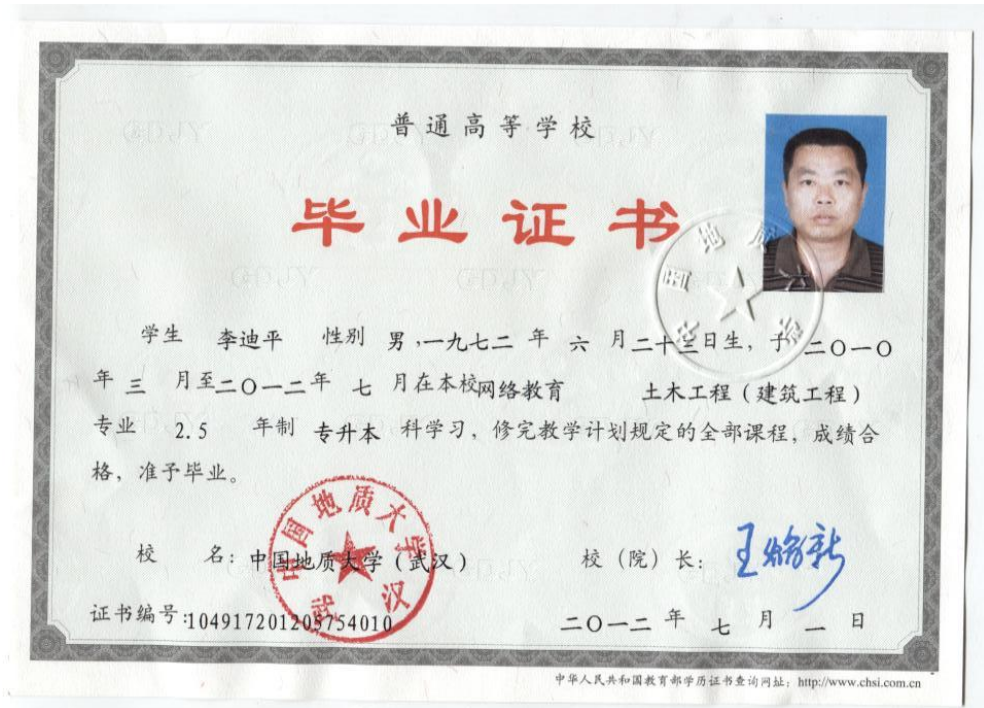 普通高等学校
毕业证书
学生 李迪平 性别 男,一九七二 年 六 月二十三日生,于 二〇一〇
年 三 月至二〇一二年 七 月在本校网络教育 土木工程(建筑工程)
专业 2.5 年制 专升本 科学习,修完教学计划规定的全部课程,成绩合
格,准予毕业。
校 名:中国地质大学(武汉)
校(院)长:
证书编号:104917201205754010
二〇一二 年 七 月 一 日
中国地质大学
武汉
中华人民共和国教育部学历证书查询网址:http://www.chsi.com.cn